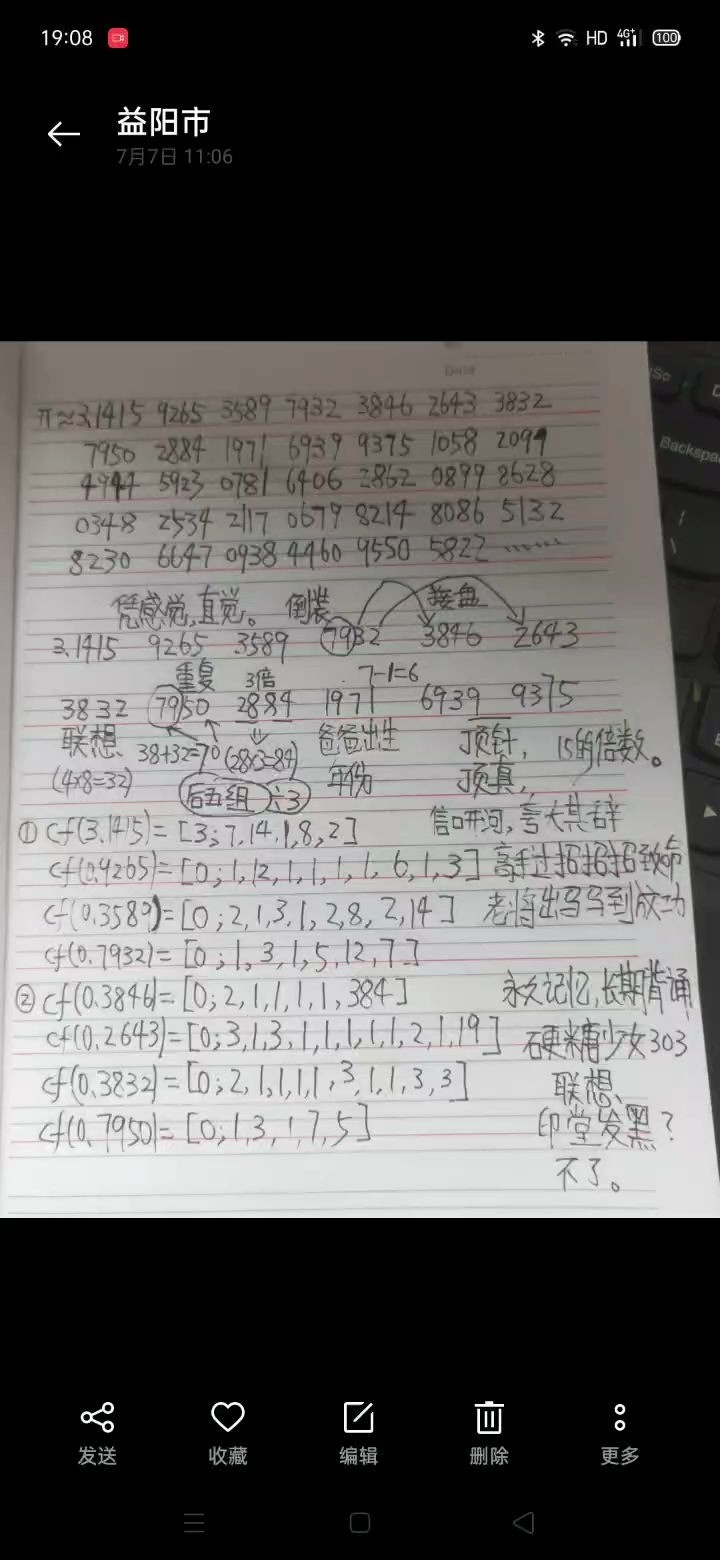 19:08 HD 4G+ 100
益阳市
7月7日 11:06
Date
Backspa
π≈3.1415 9265 3589 7932 3846 2643 3832
7950 2884 1971 6939 9375 1058 2099
4944 5923 0781 6406 2862 0899 8628
0348 2534 2117 0679 8214 8086 5132
8230 6647 0938 4460 9550 5822 ……
凭感觉,直觉。 倒装 接盘
3.1415 9265 3589 7932 3846 2643
重复 3倍 7-1=6
3832 7950 2884 1971 6939 9375
联想、 38+32=70 (28×3=84) 爸爸出生 顶针, 15的倍数。
(4×8=32) 后五组 六3 年份 顶真,
① cf(3.1415)=[3;7,14,1,8,2] 信口开河,夸大其辞
cf(0.9265)=[0;1,12,1,1,1,1,6,1,3] 高手过招招招致命
cf(0.3589)=[0;2,1,3,1,2,8,2,14] 老将出马马到成功
cf(0.7932)=[0;1,3,1,5,12,7]
② cf(0.3846)=[0;2,1,1,1,1,384] 永久记忆,长期背诵
cf(0.2643)=[0;3,1,3,1,1,1,1,1,2,1,19] 硬糖少女303
cf(0.3832)=[0;2,1,1,1,1,3,1,1,3,3] 联想、
cf(0.7950)=[0;1,3,1,7,5] 印堂发黑?
不了。
发送 收藏 编辑 删除 更多